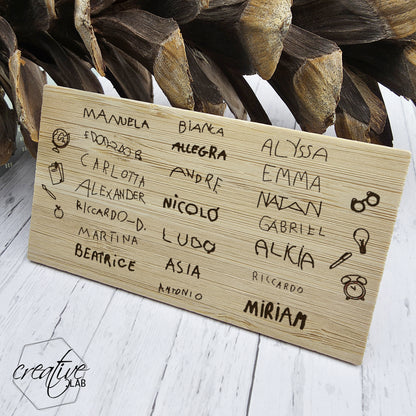 MANUELA
EDOARDO B.
CARLOTTA
ALEXANDER
RICCARDO-D.
MARTINA
BEATRICE
BIANCA
ALLEGRA
ANDRE
NICOLÒ
LUDO
ASIA
ANTONIO
ALYSSA
EMMA
NATAN
GABRIEL
ALICIA
RICCARDO
MIRIAM
creative
LAB